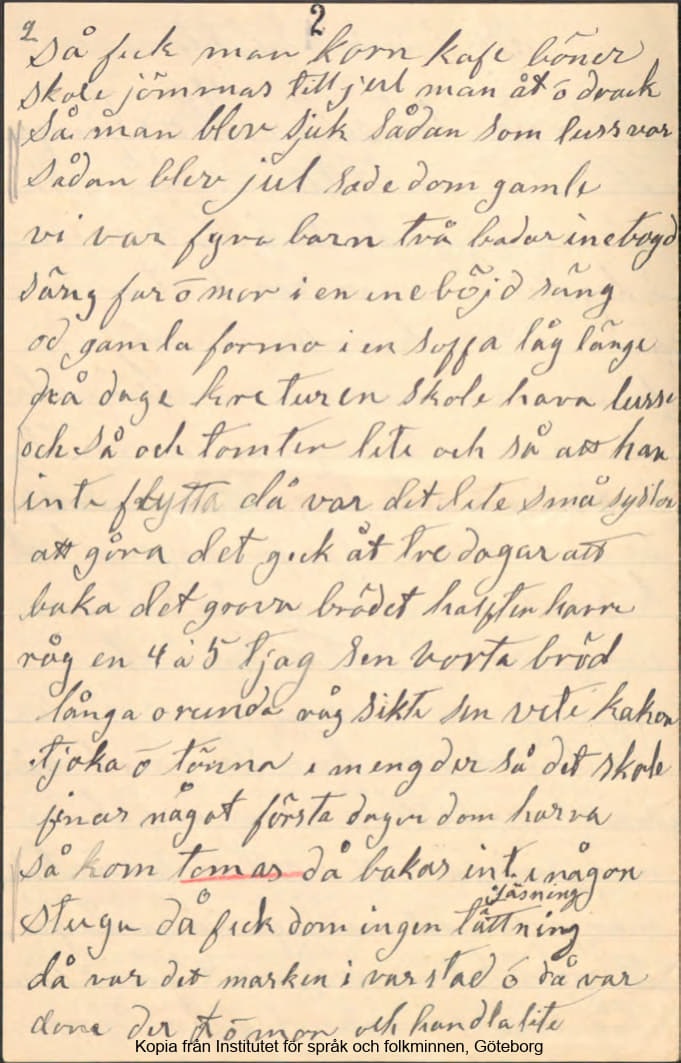 2
2
så feck man korn kafe böner
skole jömmas till jul man åt ö drack
så man blev sjuk sådan som luss var
sådan blev jul sade dom gamle
vi var fyra barn två badar inebogd
säng far ö mor i en inebögd säng
od gamla formo i en soffa låg länge
på dage kreturen skole hava lusse
och så och tomten lite och så att han
inte flytta då var det lete små syslor
att göra det geck åt tre dagar att
baka det grova brödet halften havre
råg en 4 à 5 tjag sen vorta bröd
långa o runda råg sikte sen vete kakor
tjoka ö tönna i mengder så det skole
finas något första dagen dom harva
så kom tomas då bakas inte i någon
stugu då feck dom ingen tättning
jäsning
då var det marken i varstad ö då var
dona der ö mon och handla lite
Kopia från Institutet för språk och folkminnen, Göteborg